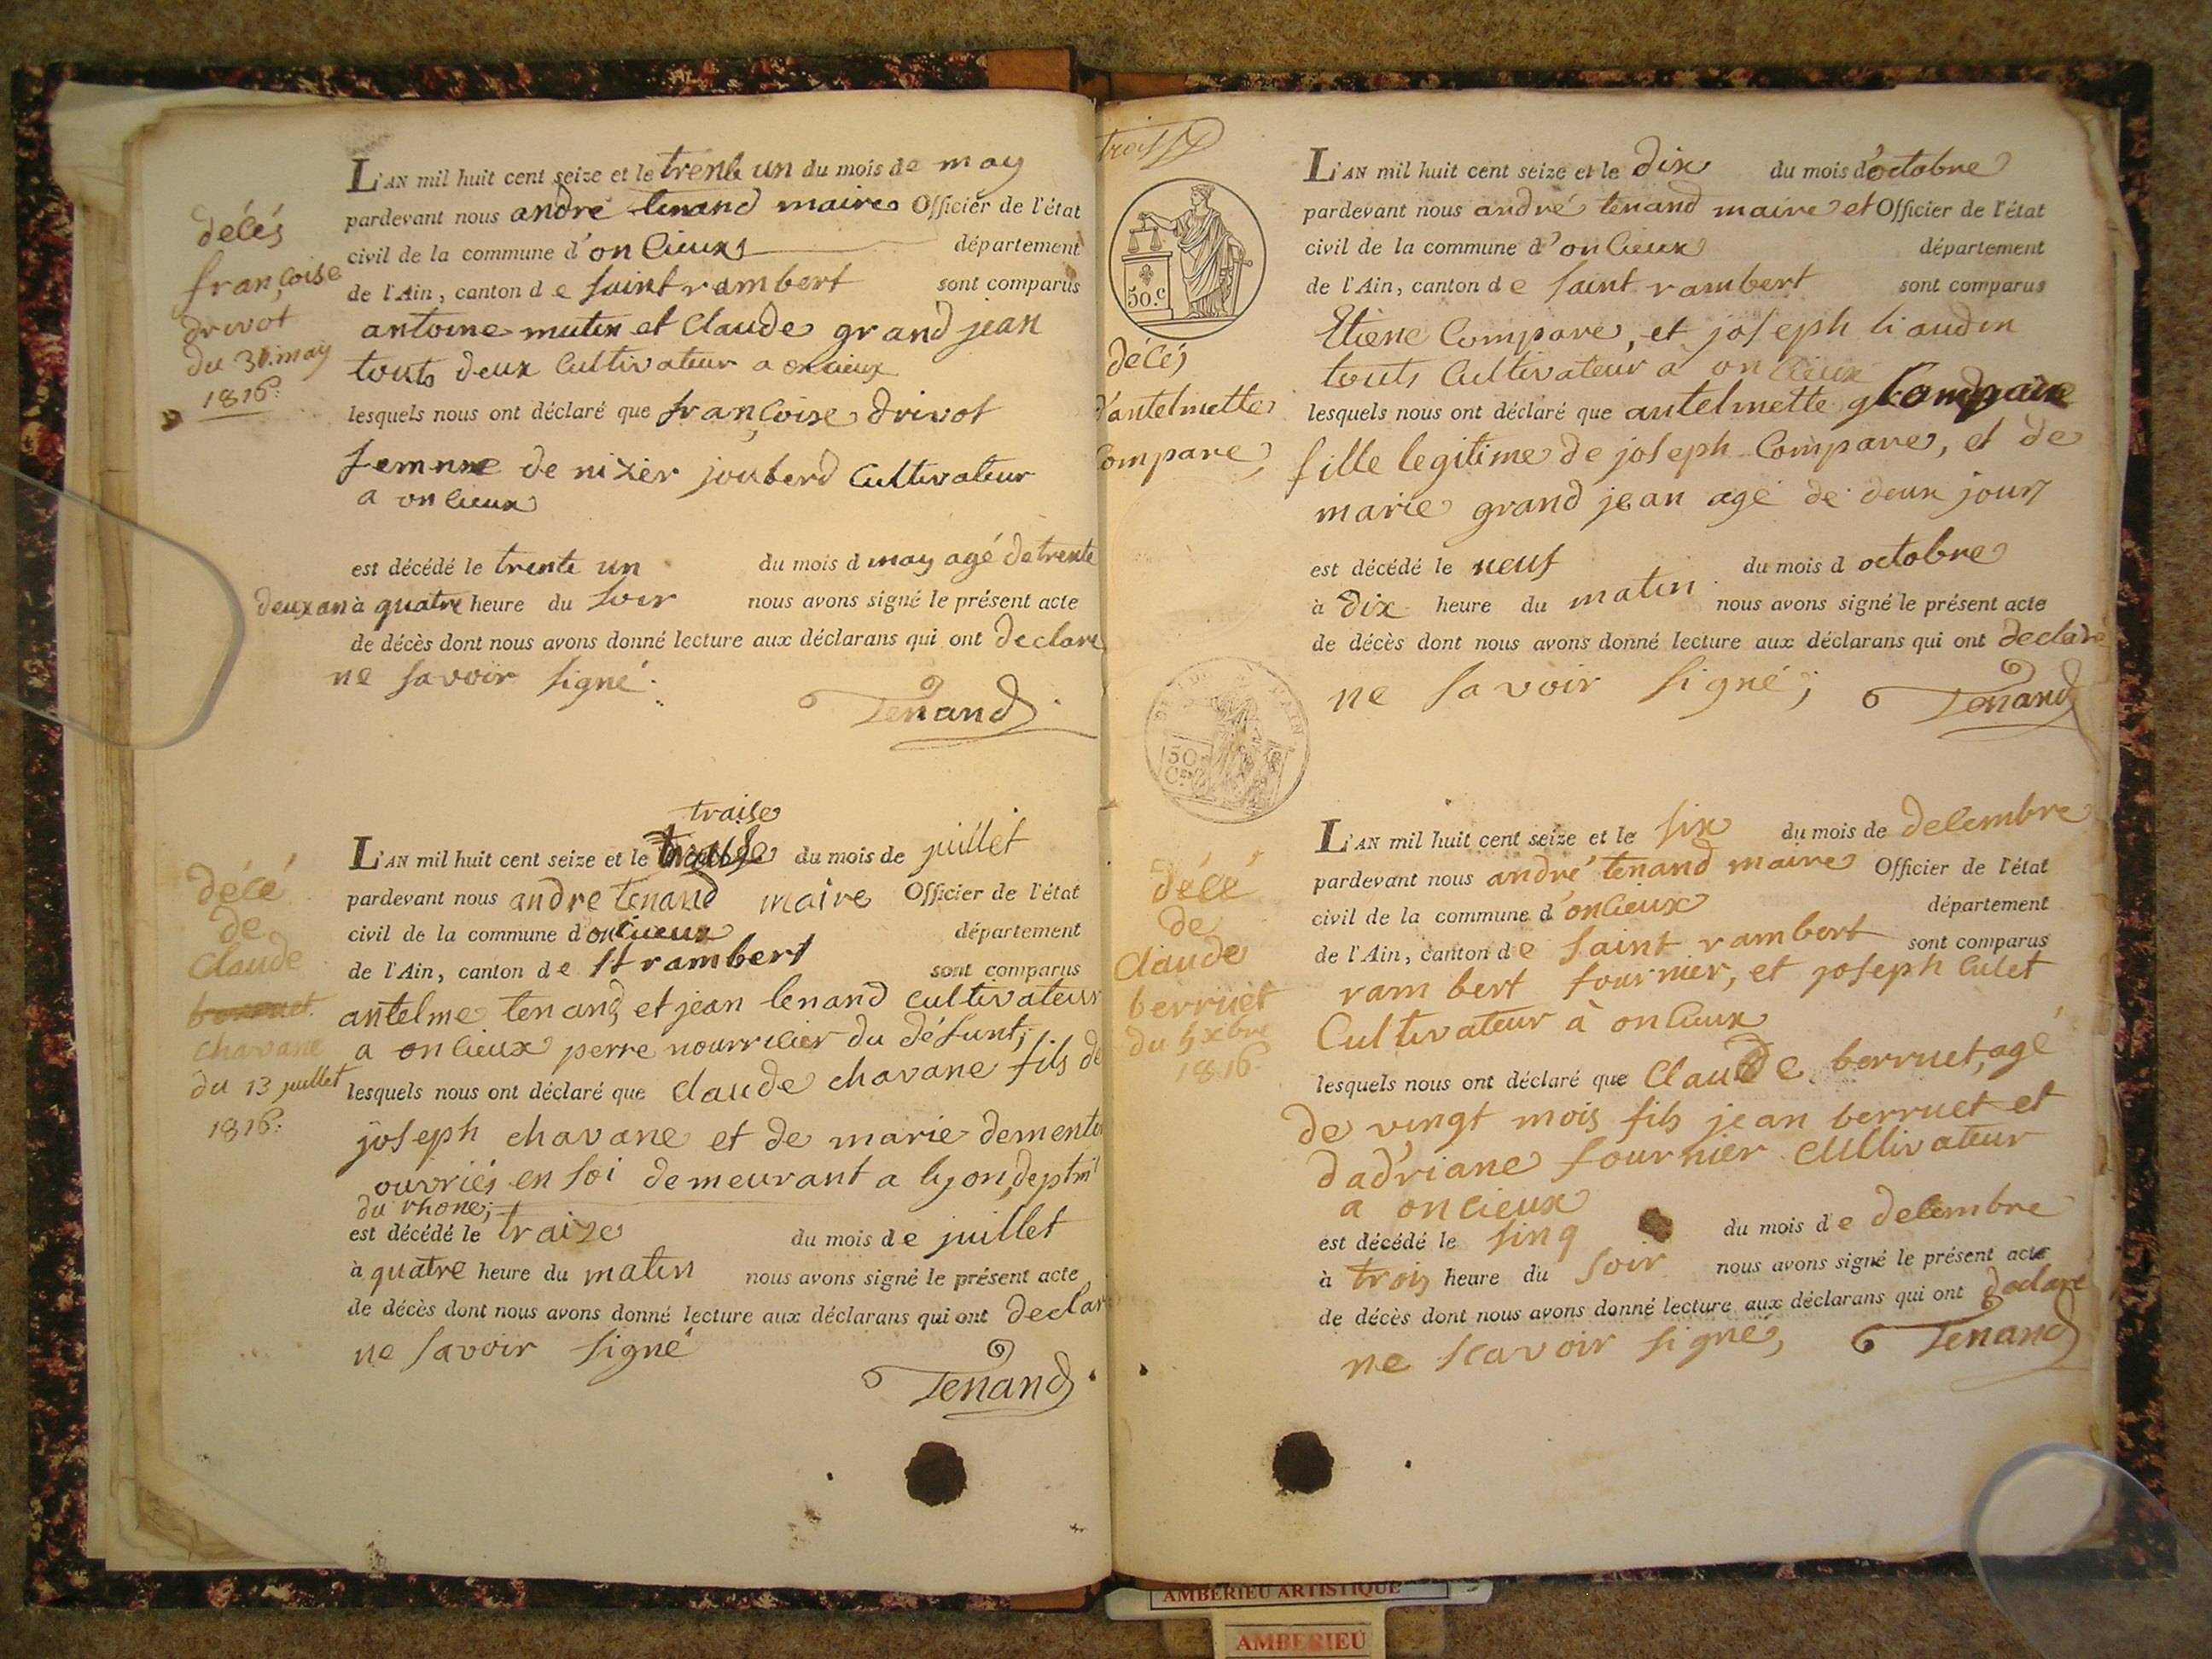 décés
françoise
drivot
du 31. may
1816.
L'AN mil huit cent seize et le trente un du mois de may
pardevant nous andré tenand maire Officier de l'état
civil de la commune d'onlieux département
de l'Ain, canton de saint rambert sont comparus
antoine mutin et Claude grand jean
touts deux Cultivateur a onlieux
lesquels nous ont déclaré que françoise drivot
femme de nizier jouberd Cultivateur
a onlieux
est décédé le trente un du mois d may agé de trente
deux an à quatre heure du soir nous avons signé le présent acte
de décès dont nous avons donné lecture aux déclarans qui ont declare
ne savoir signé.
Tenand
décé
de
Claude
berruet
chavane
du 13 juillet
1816.
traise
L'AN mil huit cent seize et le du mois de juillet
pardevant nous andre tenand maire Officier de l'état
civil de la commune d'onlieux département
de l'Ain, canton de st rambert sont comparus
antelme tenand et jean tenand cultivateur
a onlieux perre nourricier du défunt;
lesquels nous ont déclaré que claude chavane fils de
joseph chavane et de marie
ouvriés en soi demeurant a lyon, deptmt
du rhone;
est décédé le traize du mois de juillet
à quatre heure du matin nous avons signé le présent acte
de décès dont nous avons donné lecture aux déclarans qui ont declar
ne savoir signé
Tenand
trois
50.c
décés
d'antelmette
Compare
L'AN mil huit cent seize et le dix du mois d'octobre
pardevant nous andré tenand maire et Officier de l'état
civil de la commune d'onlieux département
de l'Ain, canton de saint rambert sont comparus
Etiene Compare, et joseph liaudin
touts Cultivateur a onlieux
lesquels nous ont déclaré que antelmette Compare
fille legitime de joseph Compare, et de
marie grand jean agé de deux jours
est décédé le neuf du mois d octobre
à dix heure du matin nous avons signé le présent acte
de décès dont nous avons donné lecture aux déclarans qui ont declaré
ne savoir signé;
Tenand
50
décé
de
Claude
berruet
du 5 xbre
1816.
L'AN mil huit cent seize et le six du mois de decembre
pardevant nous andré tenand maire Officier de l'état
civil de la commune d'onlieux département
de l'Ain, canton de saint rambert sont comparus
rambert fournier, et joseph Culet
Cultivateur à onlieux
lesquels nous ont déclaré que Claude berruet, agé
de vingt mois fils jean berruet et
d'adriane fournier cultivateur
a onlieux
est décédé le sinq du mois de decembre
à trois heure du soir nous avons signé le présent acte
de décès dont nous avons donné lecture aux déclarans qui ont declaré
ne scavoir signé,
Tenand
AMBERIEU ARTISTIQUE
AMBERIEU